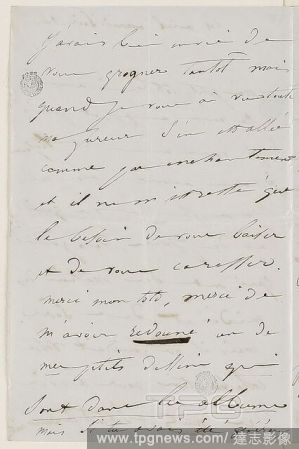 J'avais bien envie de
vous grogner tantôt mais
quand je vous ai vu toute
ma fureur s'en est allée
comme par enchantement
et il ne m'est resté que
le besoin de vous baiser
et de vous caresser.
merci mon toto, merci de
m'avoir redonné un de
mes ptits dessins qui
sont dans les albums
mais si tu avais été
TPG
www.tpgnews.com/ 達志影像